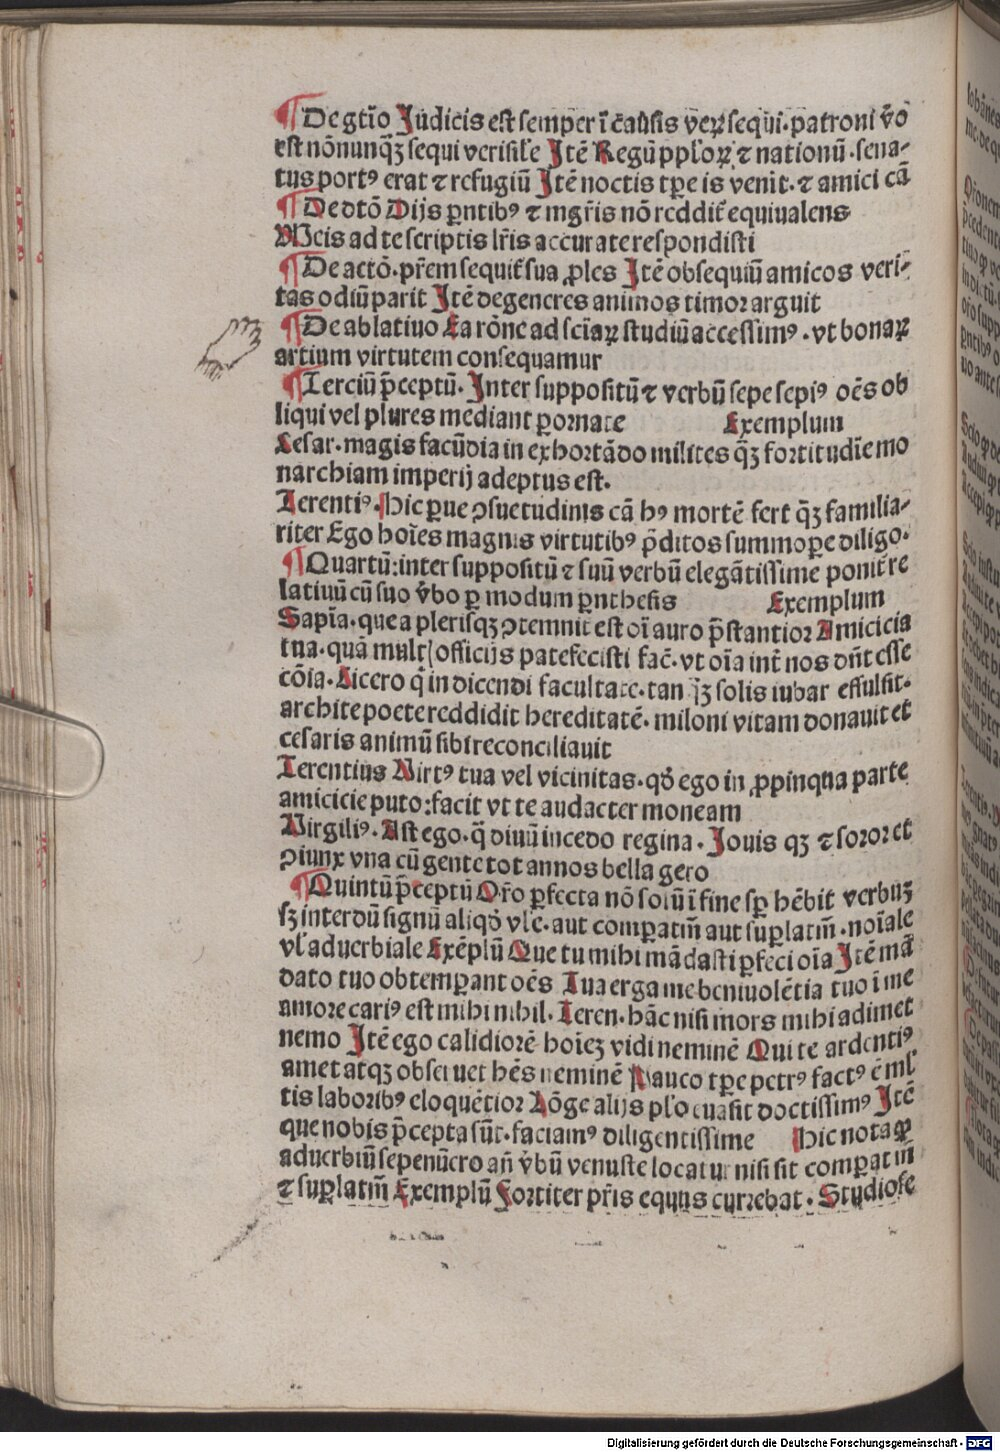 ¶De gt̄io Judicis est semper ī cāusis veꝝ sequi·patroni v̄o
est nōnunqȝ sequi verisile Jtē Regū pploꝝ ⁊ nationū·sena⸗
tus portꝰ erat ⁊ refugiū Jtē noctis tꝑe is venit·⁊ amici cā
¶De dtō Dijs ꝑntibꝰ ⁊ mgr̄is nō reddit̄ equiualens
Meis ad te scriptis lr̄is accurate respondisti
¶De actō·pr̄em sequit̄ sua ꝓles Jtē obsequiū amicos veri⸗
tas odiū parit Jtē degeneres animos timor arguit
¶De ablatiuo Ea rōne ad sciaꝝ studiū accessimꝰ·vt bonaꝝ
artium virtutem consequamur
¶Terciū p̄ceptū·Jnter suppositū ⁊ verbū sepe sepiꝰ oēs ob
liqui vel plures mediant ꝑornate Exemplum
Cesar·magis facūdia in exhortādo milites qȝ̄ fortitudīe mo
narchiam imperij adeptus est.
Terentiꝰ·Hic ꝑue ꝯsuetudinis cā hꝰ mortē fert qȝ̄ familia⸗
riter Ego hoīes magnis virtutibꝰ p̄ditos summoꝑe diligo·
¶Quartū:inter suppositū ⁊ suū verbū elegātissime ponit̄ re
latiuū cū suo v̄bo ꝑ modum ꝑnthesis Exemplum
Sapīa·que a plerisqȝ ꝯtemnit̄ est oī auro p̄stantior Amicicia
tua·quā mult̄ officijs patefecisti fac̄·vt oīa int̄ nos dn̄t esse
cōia·Cicero q̄ in dicendi facultate·tan qȝ̄ solis iubar effulsit·
archite poete reddidit hereditatē·miloni vitam donauit et
cesaris animū sibi reconciliauit
Terentius Virtꝰ tua vel vicinitas·qd̄ ego in ꝓpinqua parte
amicicie puto:facit vt te audacter moneam
Virgiliꝰ·Ast ego·q̄ diuū incedo regina·Jouis qȝ ⁊ soror et
ꝯiunx vna cū gente tot annos bella gero
¶Quintū p̄ceptū Or̄o ꝑfecta nō solū ī fine sꝑ hēbit verbuȝ
sȝ interdū signū aliqd̄ vl̄e·aut comꝑatim̄ aut suꝑlatim̄·noīale
vl̄ aduerbiale Exēplū Que tu mihi mādasti ꝑfeci oīa Jtē mā
dato tuo obtemꝑant oēs Tua erga me beniuolētia tuo ī me
amore cariꝰ est mihi nihil·Teren·hāc nisi mors mihi adimet
nemo Jtē ego calidiorē hoīeȝ vidi neminē Qui te ardentiꝰ
amet atqȝ obseruet hēs neminē Pauco tꝑe petrꝰ factꝰ ē ml̄
tis laboribꝰ eloquētior Lōge alijs plo euasit doctissimꝰ Jtē
que nobis p̄cepta sūt·faciamꝰ diligentissime Hic nota ꝙ
aduerbiū sepenūero an̄ v̄bū venuste locatur nisi sit comꝑatim̄
⁊ suꝑlatim̄ Exemplū Fortiter pr̄is equus currebat·Studiose
Digitalisierung gefördert durch die Deutsche Forschungsgemeinschaft - DFG